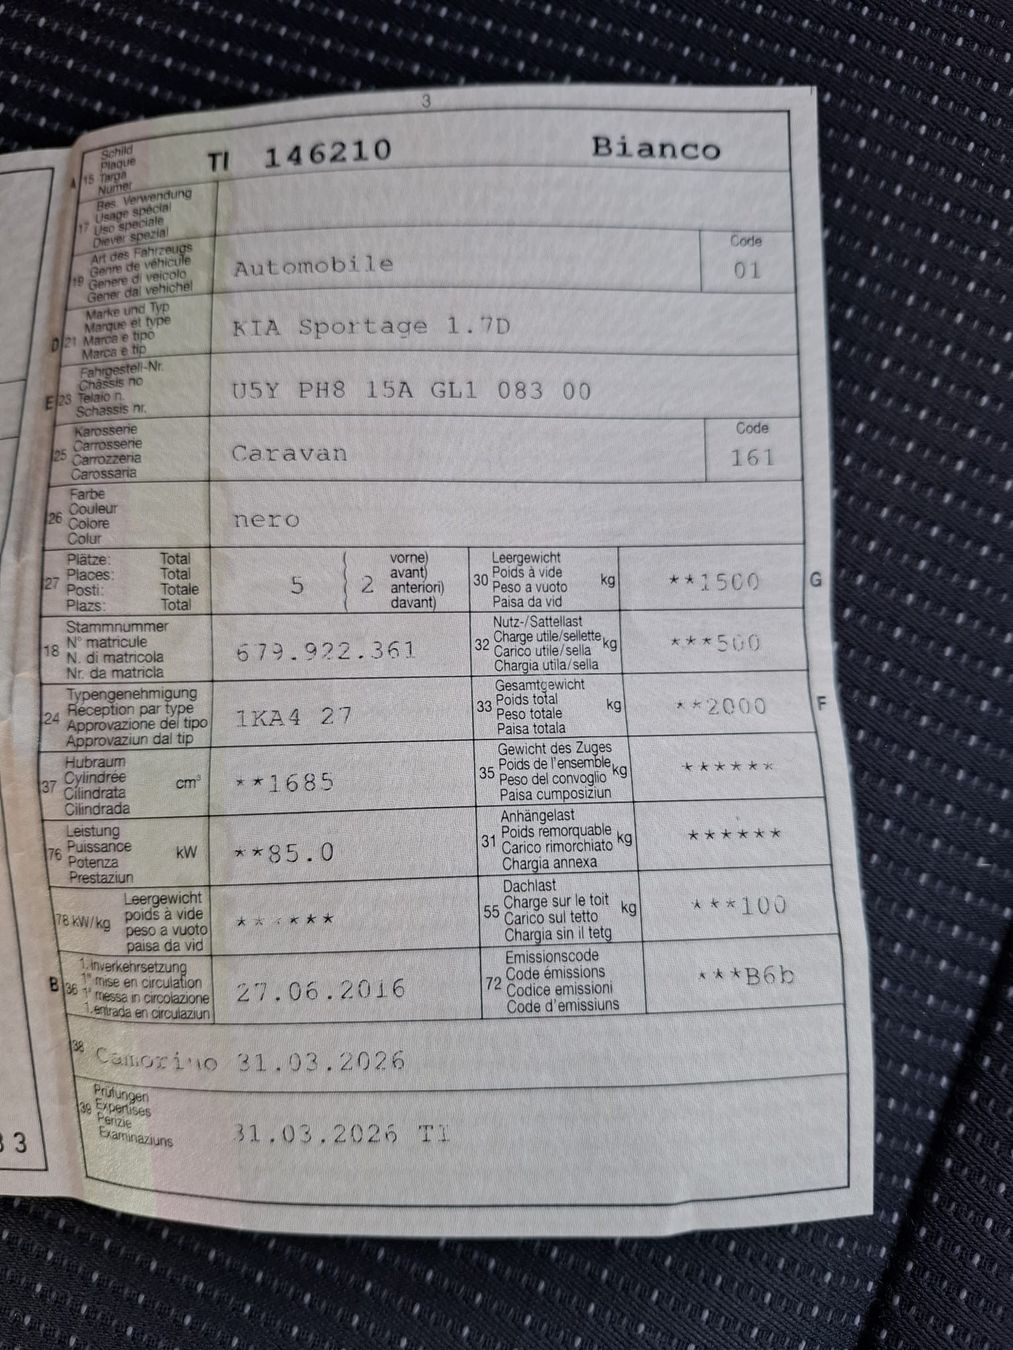 3
A 15 Schild
Plaque
Targa
Numer
TI 146210 Bianco
17 Bes. Verwendung
Usage spécial
Uso speciale
Diever spezial
19 Art des Fahrzeugs
Genre de véhicule
Genere di veicolo
Gener dal vehichel
Automobile
Code
01
D 21 Marke und Typ
Marque et type
Marca e tipo
Marca e tip
KIA Sportage 1.7D
E 23 Fahrgestell-Nr.
Châssis no
Telaio n.
Schassis nr.
U5Y PH8 15A GL1 083 00
25 Karosserie
Carrosserie
Carrozzeria
Carossaria
Caravan
Code
161
26 Farbe
Couleur
Colore
Colur
nero
27 Plätze: Total
Places: Total
Posti: Totale
Plazs: Total
5 ( 2 vorne)
avant)
anteriori)
davant)
30 Leergewicht
Poids à vide
Peso a vuoto
Paisa da vid
kg **1500 G
18 Stammnummer
N° matricule
N. di matricola
Nr. da matricla
679.922.361
32 Nutz-/Sattellast
Charge utile/sellette
Carico utile/sella
Chargia utila/sella
kg ***500
24 Typengenehmigung
Réception par type
Approvazione del tipo
Approvaziun dal tip
1KA4 27
33 Gesamtgewicht
Poids total
Peso totale
Paisa totala
kg **2000 F
37 Hubraum
Cylindrée
Cilindrata
Cilindrada
cm³ **1685
35 Gewicht des Zuges
Poids de l'ensemble
Peso del convoglio
Paisa cumposiziun
kg ******
76 Leistung
Puissance
Potenza
Prestaziun
kW **85.0
31 Anhängelast
Poids remorquable
Carico rimorchiato
Chargia annexa
kg ******
78 kW/kg Leergewicht
poids à vide
peso a vuoto
paisa da vid
******
55 Dachlast
Charge sur le toit
Carico sul tetto
Chargia sin il tetg
kg ***100
B 36 1. Inverkehrsetzung
1re mise en circulation
1a messa in circolazione
1. entrada en circulaziun
27.06.2016
72 Emissionscode
Code émissions
Codice emissioni
Code d'emissiuns
***B6b
38
Camorino 31.03.2026
39 Prüfungen
Expertises
Perizie
Examinaziuns
31.03.2026 TI
33